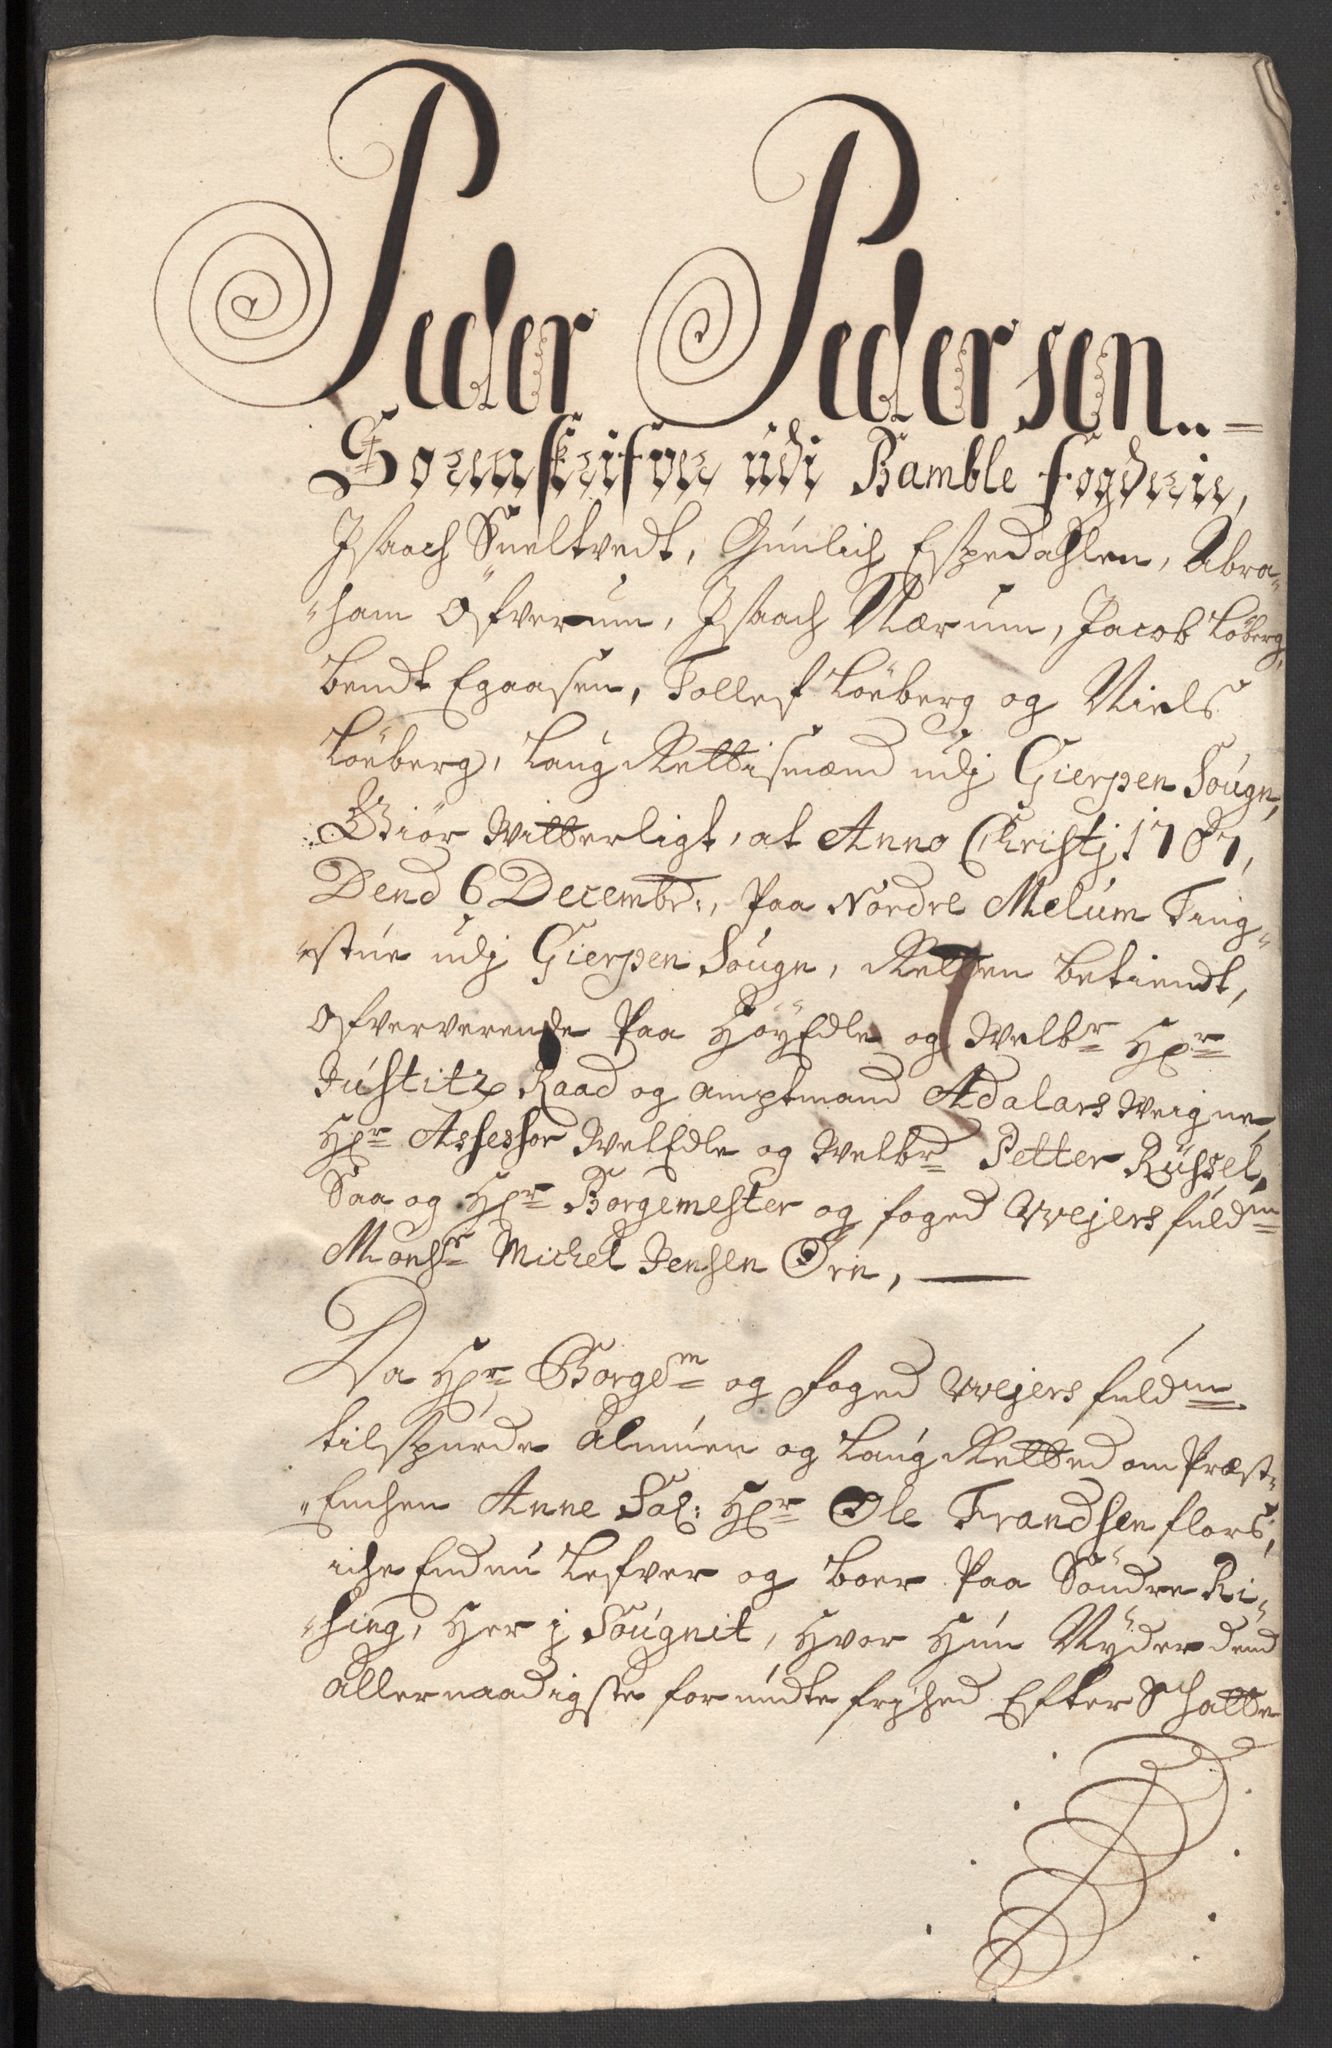 Peder Pedersen..=
Sorenskrifver udi Bamble fogderie,
Isaach Sneltvedt, Gunlich Espedahlen, Abra-
-ham Öfverum, Isaach Nærum, Jacob Löberg,
bendt Egaasen, Tollef Löeberg og Niels
Löeberg, Laug Rettismænd udj Gierpen Sougn,
Giör Witterligt, at Anno Christj 1707,
Dend 6 Decembr:, Paa Nordre Melum Ting-
-stue udj Gierpen Sougn, Retten betiendt,
Ofververende Paa HöyEdle og Welbr Hr
Justitz Raad og Amptmand Adalars Weigne,
Hr Assessor WelEdle og Welbr Petter Russel,
Saa og Hr Borgemester og foged Wejers fuldm
Monsr Michel Jensen Örn,
Da Hr Borgem og foged Wejers fuldm
tilspurde Almuen og Laug Retted om Præst-
-Enchen Anne Sal: Hr Ole Frandsen flors,
iche Endnu Lefver og boer Paa Söndre Ri-
-sing, Her j Sougnit, Hvor Hun Nyder dend
Allernaadigste forundte frihed Efter Schatte